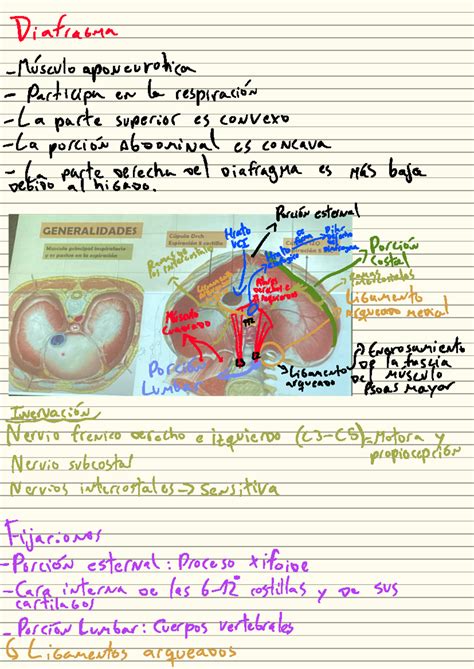 Diafragma
- Músculo aponeurotica
- Participa en la respiración
- La parte superior es convexo
- La porción Abdominal es concava
- La parte derecha del Diafragma es más baja
debido al higado.
Porción esternal
GENERALIDADES
Músculo principal inspiratorio
y es pasivo en la espiración
Cúpula Drch
Espiración 5 costilla
Hiato
VCI
Pilar
derecho
Porción
costal
Ramas
intercostales
Ligamento
arqueado medial
Músculo
Cuadrado
Porción
Lumbar
Ligamento
arqueado
Engrosamiento
de la fascia
del musculo
Psoas mayor
Inervación
Nervio frenico derecho e izquierdo (C3-C5)=Motora y
propiocepción
Nervio subcostal
Nervios intercostales → Sensitiva
Fijaciones
- Porción esternal: Proceso xifoide
- Cara interna de las 6-12° costillas y de sus
cartilagos
- Porción Lumbar: Cuerpos vertebrales
6 Ligamentos arqueados